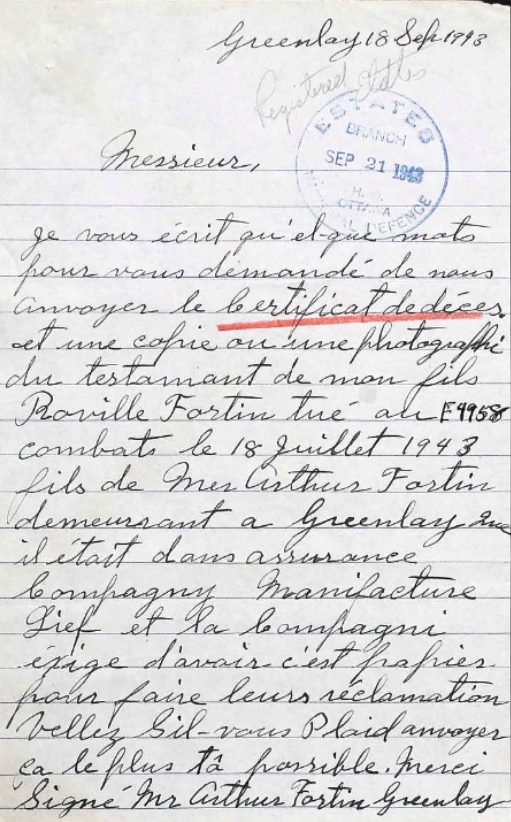 Greenlay 18 Sep 1943
Registered
ESTATES
BRANCH
SEP 21 1943
H.Q.
OTTAWA
NATIONAL DEFENCE
Messieur,
je vous écrit qu'el-que mots
pour vous demandé de nous
anvoyer le Certificat de déces.
et une copie ou une photographi
du testamant de mon fils
Roville Fortin tué au F9958
combats le 18 Juillet 1943
fils de Mer Arthur Fortin
demeurant a Greenlay Que
il était dans assurance
Compagny Manifacture
Lief et la Compagni
éxige d'avoir c'est papier
pour faire leurs réclamation
Vellez Sil-vous Plaid anvoyer
ça le plus tâ possible. Merci
Signé Mr Arthur Fortin Greenlay